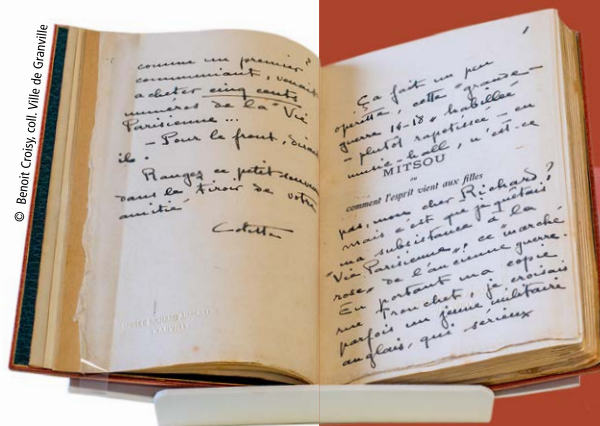 © Benoit Croisy, coll. Ville de Granville
comme un premier
communiant, venait
acheter cinq cents
numéros de la "Vie
Parisienne...
— Pour le front, disait
il.
Rangez ce petit souvenir
dans le tiroir de votre
amitié
Colette
GRANVILLE
Ça fait un peu
opérette, cette "grande-
guerre 14-18" habillée
— plutôt rapetissée — en
music-hall, n'est-ce
MITSOU
ou
comment l'esprit vient aux filles
pas, mon cher Richard?
mais c'est que je quêtais
ma subsistance à la
"Vie Parisienne", ce "marché
rose" de l'ancienne guerre.
En portant ma copie
rue Tronchet, je croisais
parfois un jeune militaire
anglais, qui, sérieux